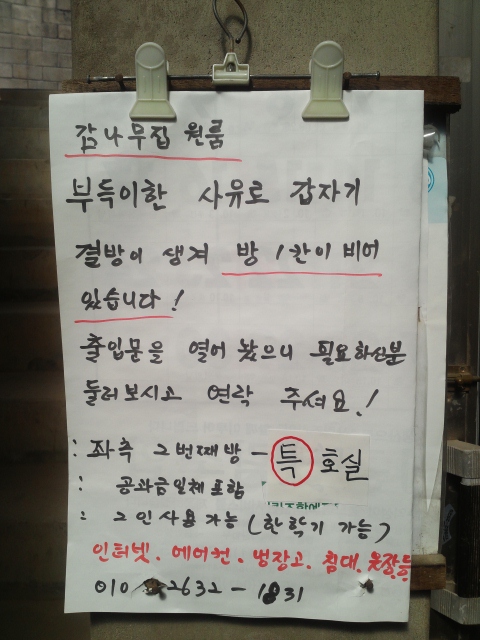 감나무집 원룸
부득이한 사유로 갑자기
결방이 생겨 방 1칸이 비어
있습니다!
출입문을 열어 놨으니 필요하신분
둘러보시고 연락 주셔요!
: 좌측 2번째방 - 특호실
: 공과금일체포함
: 2인사용가능 (한학기 가능)
인터넷. 에어컨. 냉장고. 침대. 옷장등
010 2632-1831